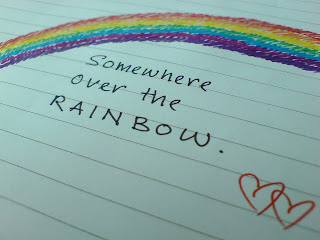 Somewhere
over the
RAINBOW.